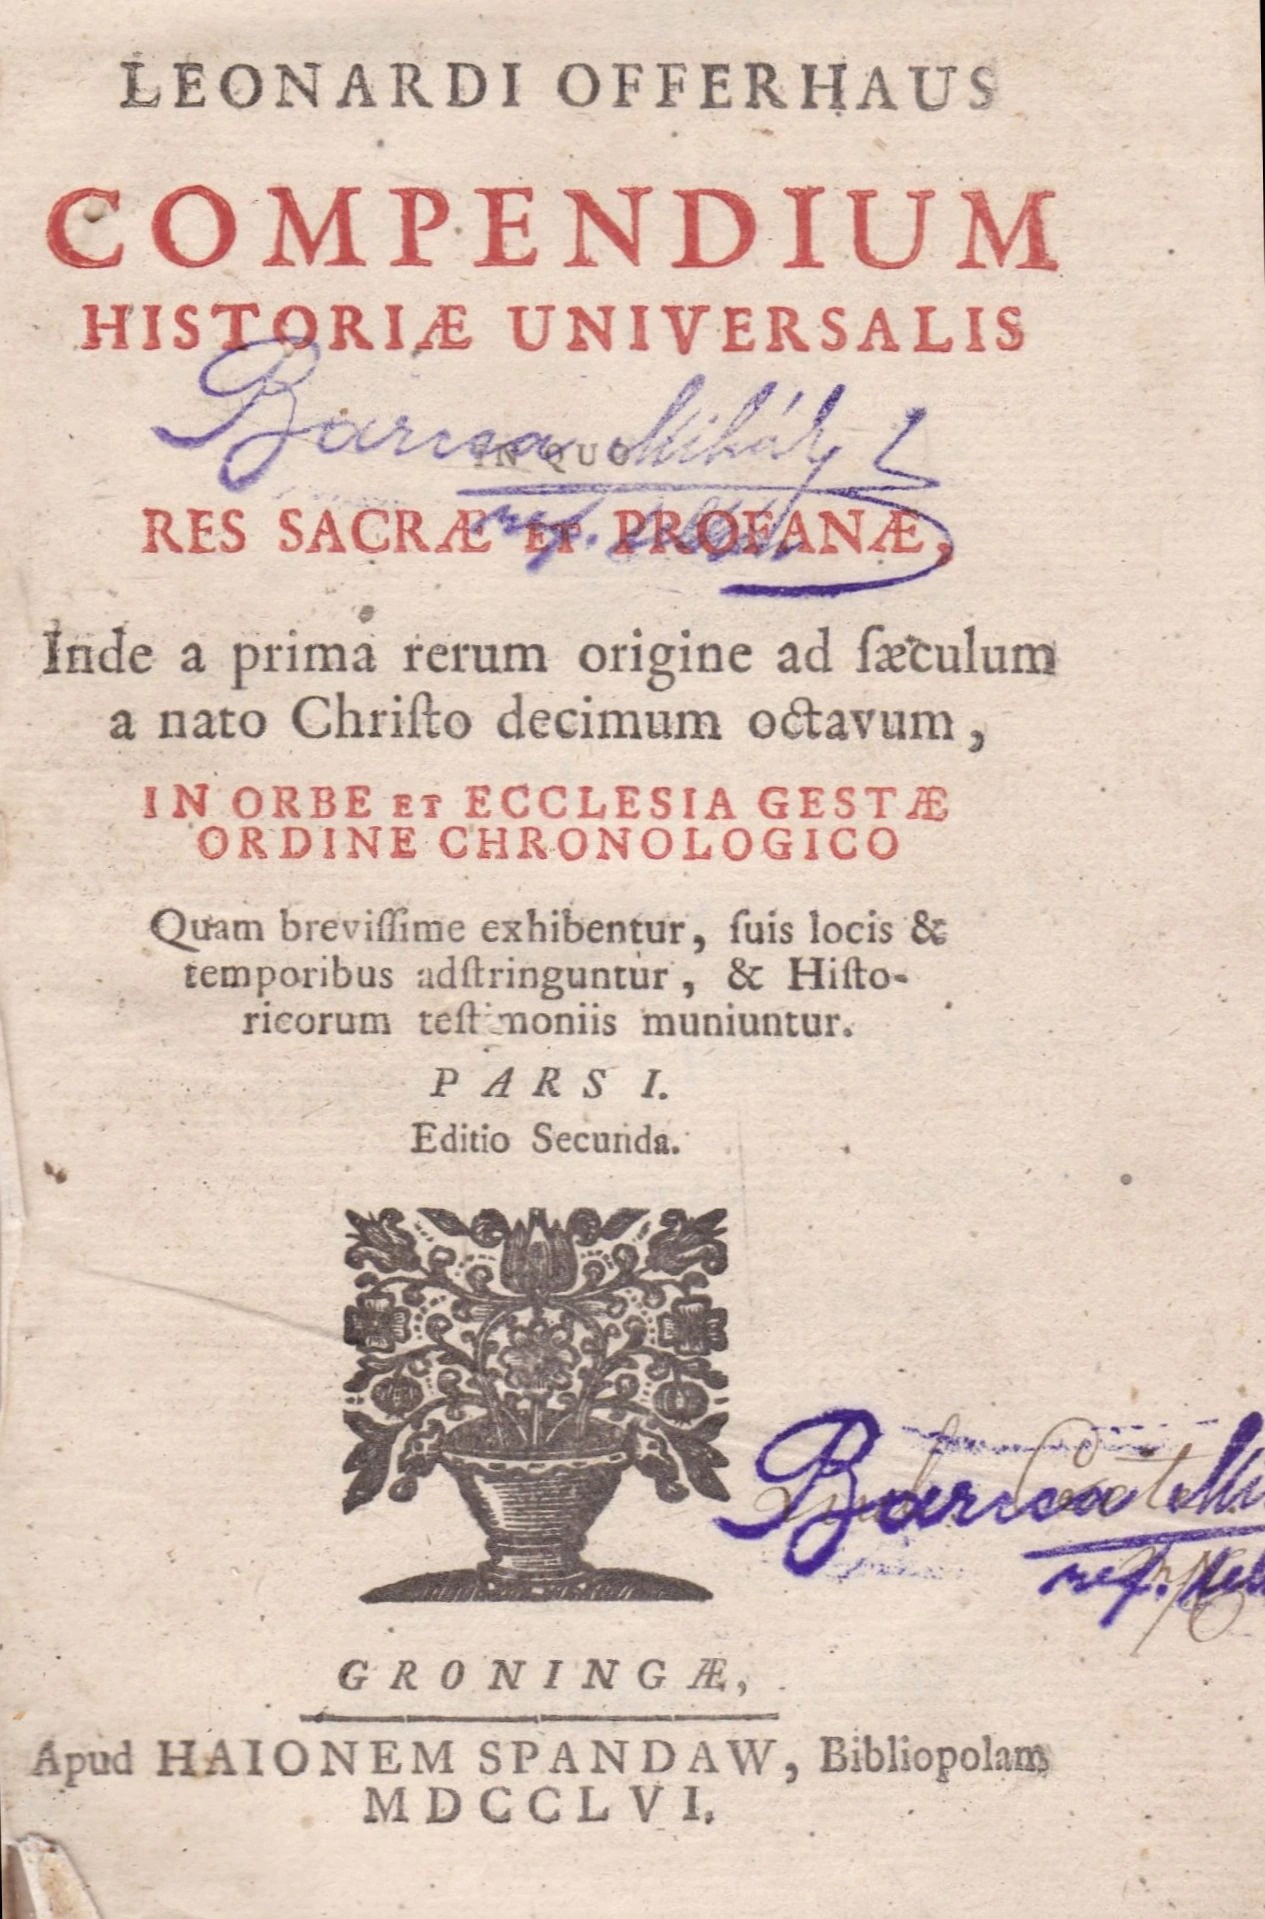 LEONARDI OFFERHAUS
COMPENDIUM
HISTORIÆ UNIVERSALIS
Barcsa Mihály
IN QUO
RES SACRÆ ET PROFANÆ,
ref.
Inde a prima rerum origine ad ſæculum
a nato Chriſto decimum octavum,
IN ORBE ET ECCLESIA GESTÆ
ORDINE CHRONOLOGICO
Quam breviſſime exhibentur, ſuis locis &
temporibus adſtringuntur, & Hiſto-
ricorum teſtimoniis muniuntur.
PARS I.
Editio Secunda.
Barcsa Mi
ref.
GRONINGÆ,
Apud HAIONEM SPANDAW, Bibliopolam
MDCCLVI.